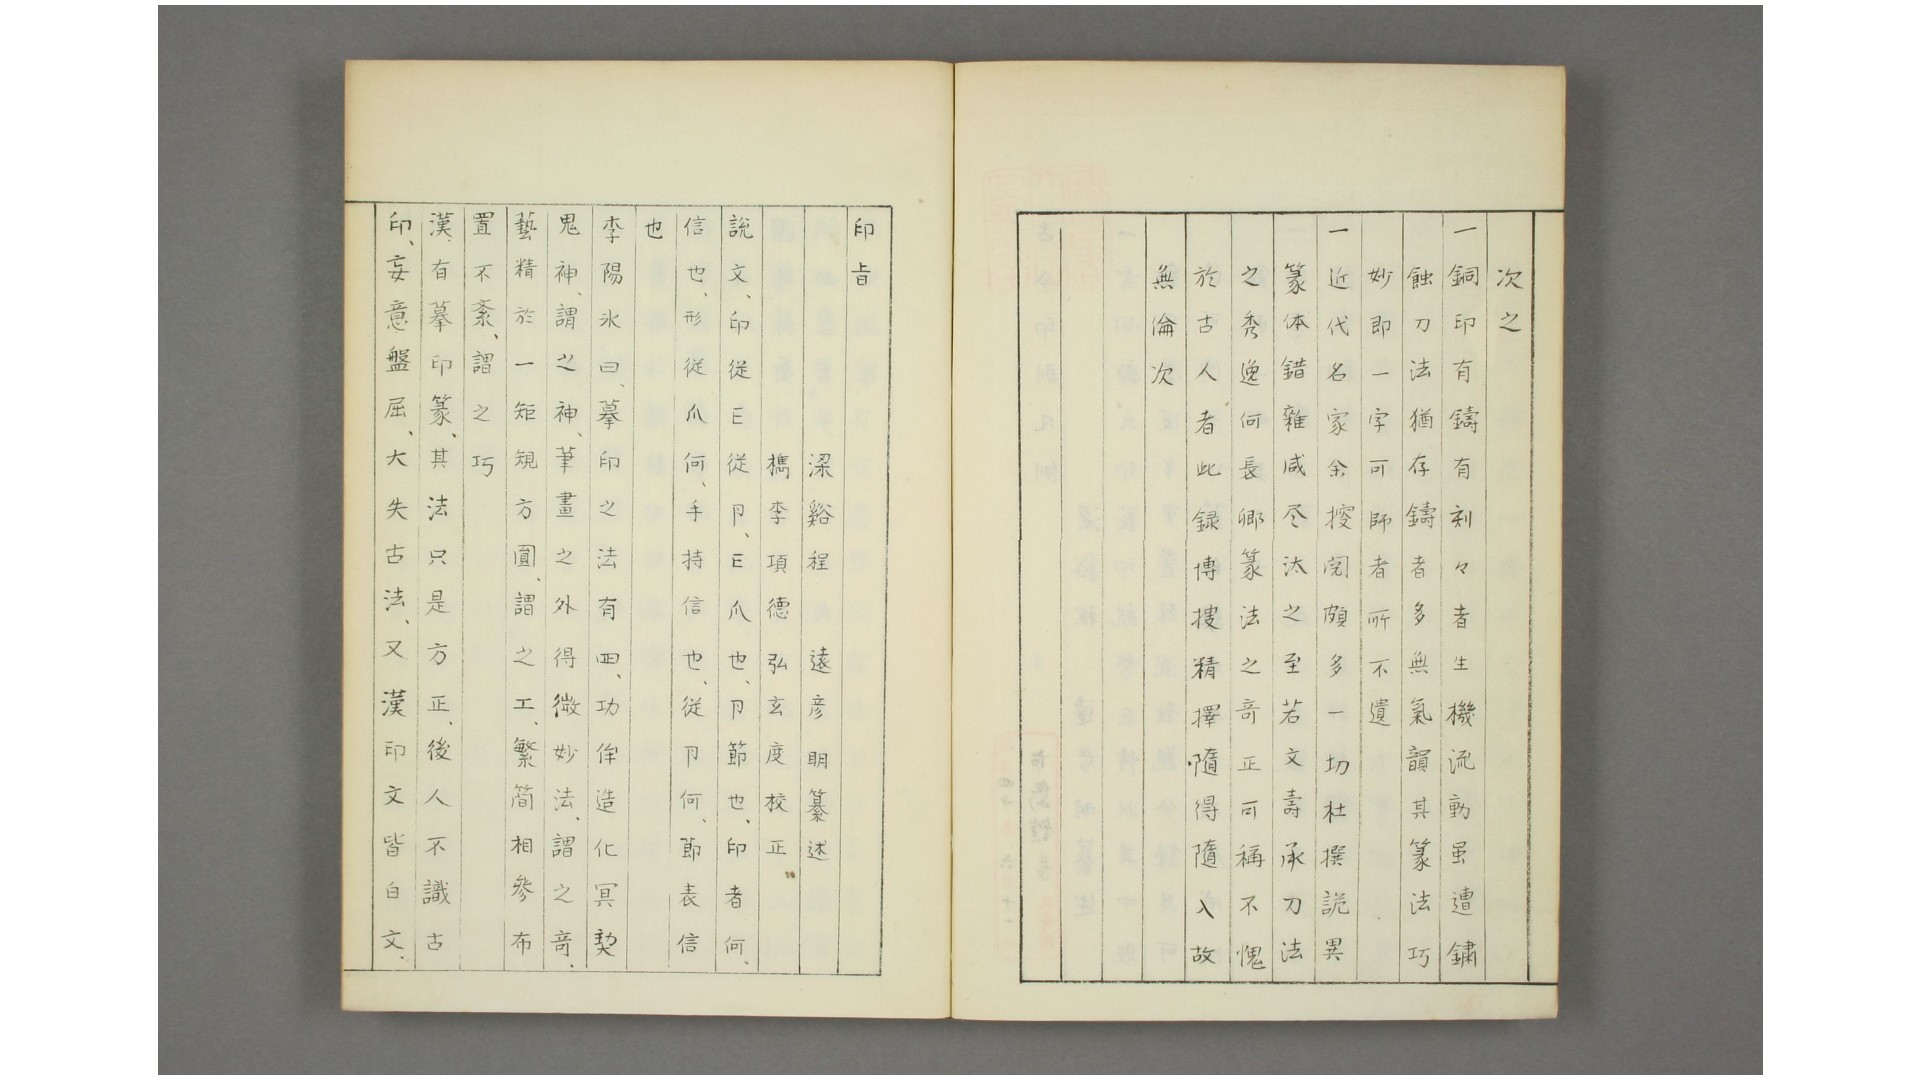 次之
一銅印有鑄有刻々者生機流動虽遭鏽
蝕刀法猶存鑄者多無氣韻其篆法巧
妙即一字可師者所不遺
一近代名家余控閲頗多一切杜撰詭異
篆体錯雜咸尽汰之至若文壽承刀法
之秀逸何長卿篆法之奇正可稱不愧
於古人者此録博搜精擇隨得隨入故
無倫次
印旨
梁谿程遠彦明纂述
檇李項德弘玄度校正
說文、印從𠂎從卪、𠂎爪也、卪節也、印者何、
信也、形從爪何、手持信也、從卪何、節表信
也
李陽氷曰、摹印之法有四、功侔造化冥契
鬼神、謂之神、筆畫之外得微妙法、謂之奇、
藝精於一矩規方圓、謂之工、繁簡相參布
置不紊、謂之巧
漢有摹印篆、其法只是方正、後人不識古
印、妄意盤屈、大失古法、又漢印文皆白文、